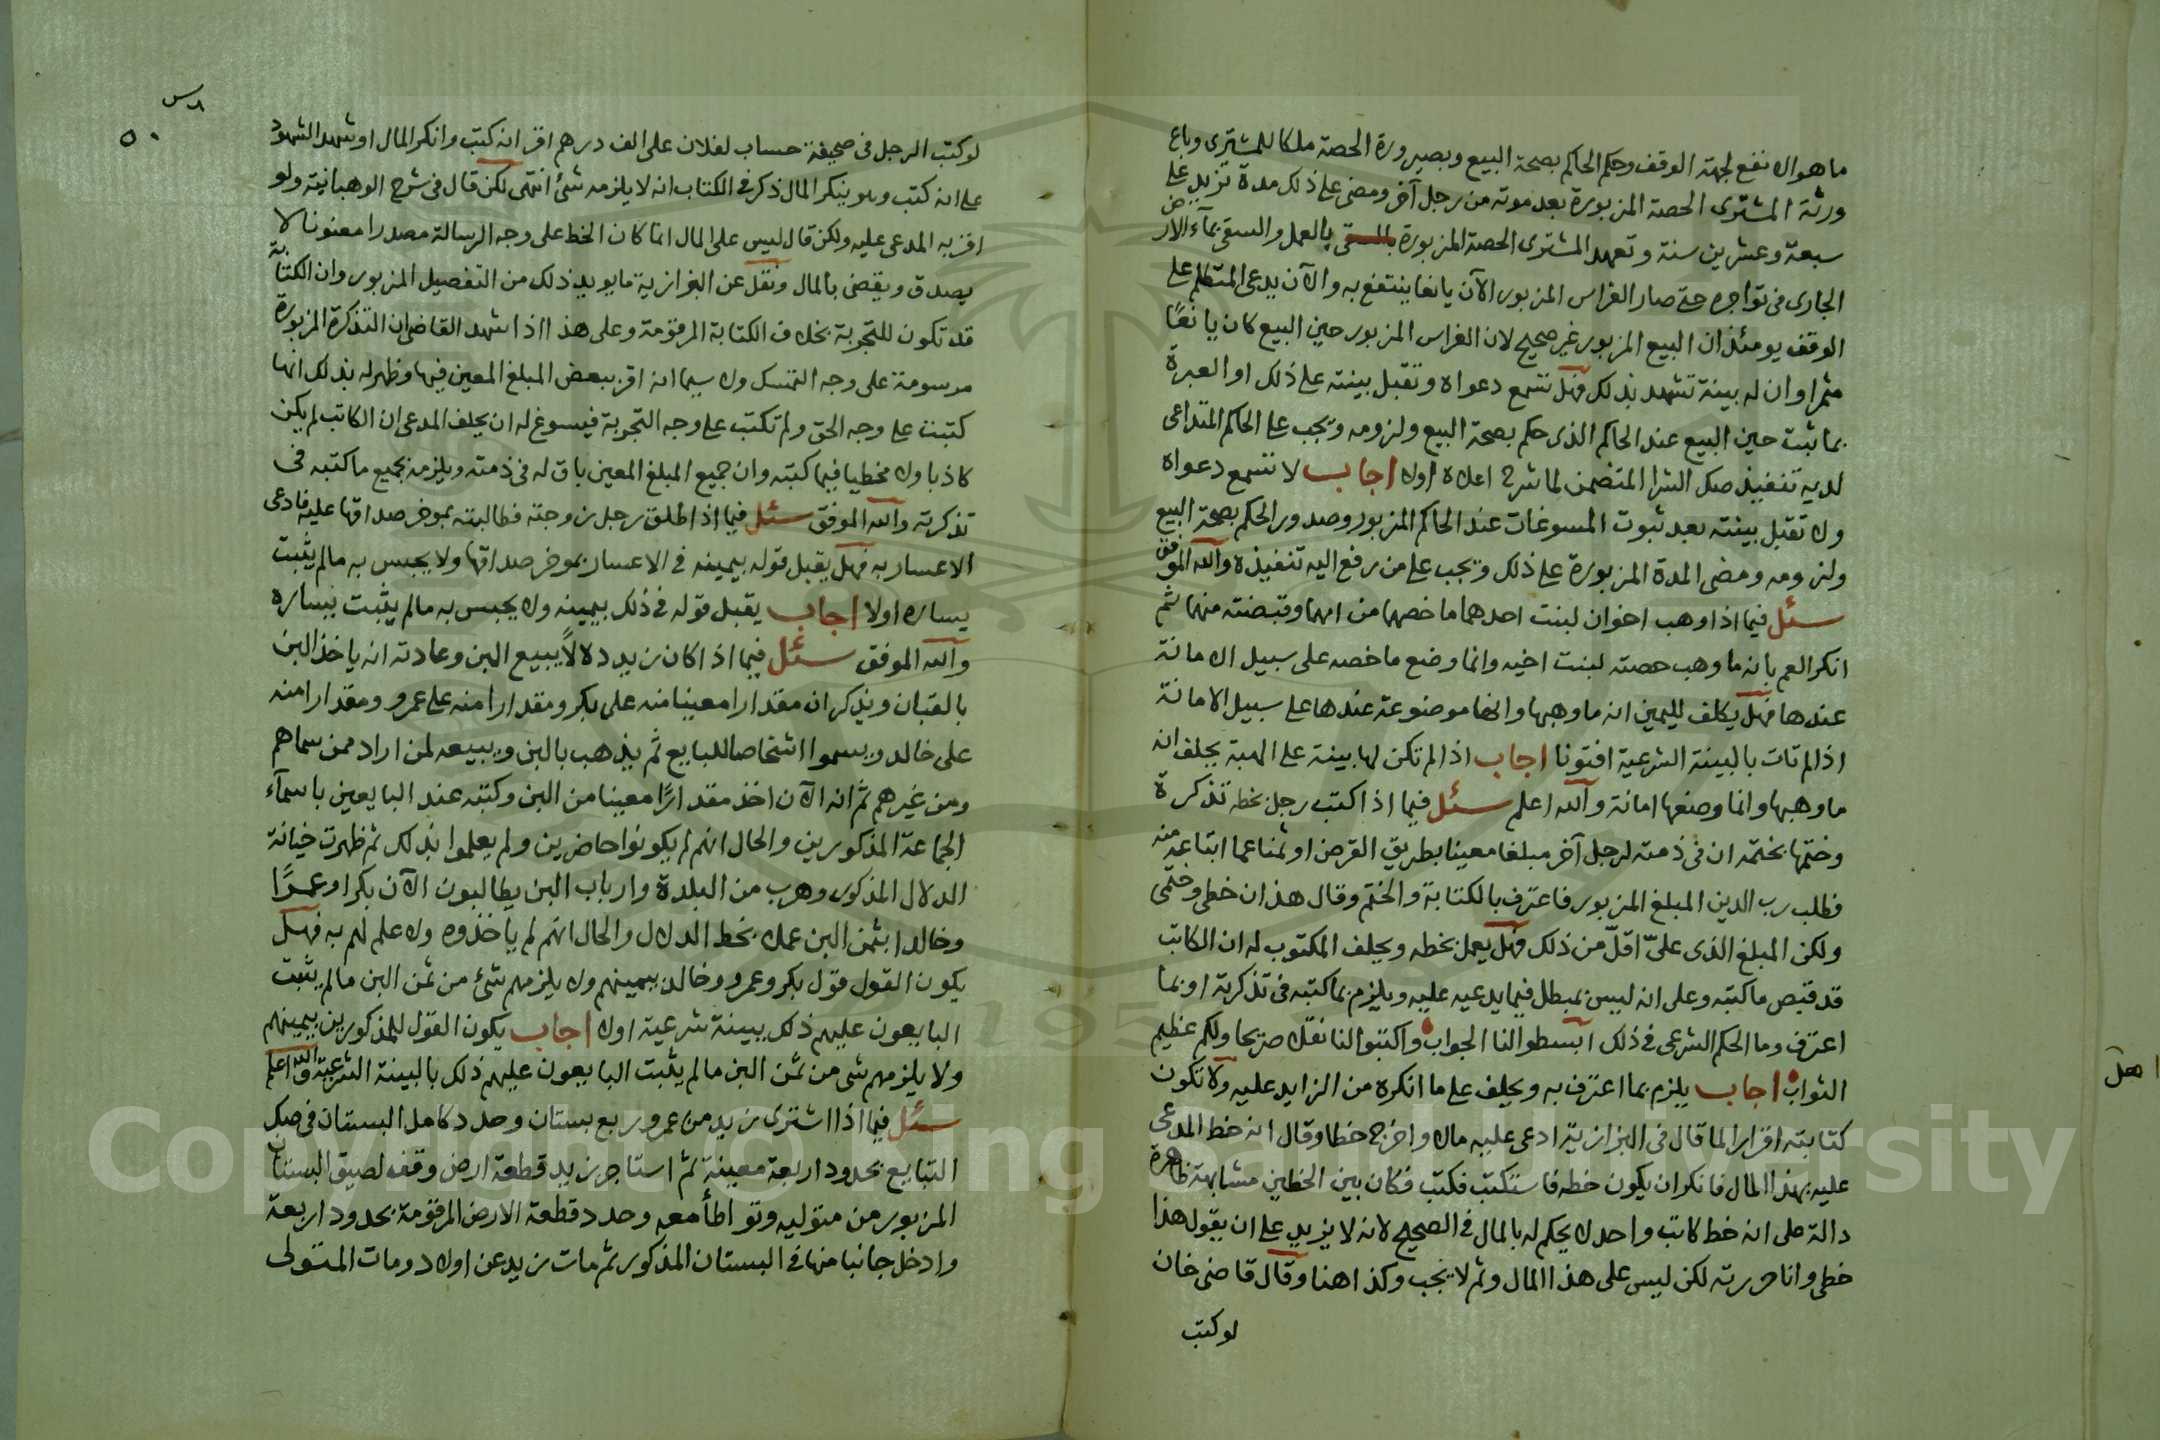 ما هو الانفع لجهة الوقف وحكم الحاكم بصحة البيع وبصيرورة الحصة ملكا للمشترى وباع
ورثة المشترى الحصة المزبورة بعد موته من رجل آخر ومضى على ذلك مدة تزيد على
سبعة وعشرين سنة وتعهد المشترى الحصة المزبورة بالعمل والسقى بمآء الارض
الجارى فى تواجره حتى صار الغراس المزبور الآن يانعا ينتفع به والآن يدعى المتكلم على
الوقف يومئذ ان البيع المزبور غير صحيح لان الغراس المزبور حين البيع كان يانعًا
مثمرا وان له بينة تشهد بذلك فهل تسمع دعواه وتقبل بينته على ذلك او العبرة
بما ثبت حين البيع عند الحاكم الذى حكم بصحة البيع ولزومه ويجب على الحاكم المتداعى
لديه تنفيذ صك الشرا المتضمن لما شرح اعلاه اولا اجاب لا تسمع دعواه
ولا تقبل بينته بعد ثبوت المسوغات عند الحاكم المزبور وصدور الحكم بصحة البيع
ولزومه ومضى المدة المزبورة على ذلك ويجب على من رفع اليه تنفيذه والله الموفق
سئل فيما اذا وهب اخوان لبنت احدهما ما خصهما من امهما وقبضته منهما ثم
انكر العم بانه ما وهب حصته لبنت اخيه وانما وضع ما خصه على سبيل الامانة
عندها فهل يكلف لليمين انه ما وهبها وانها موضوعة عندها على سبيل الامانة
اذا لم تات بالبينة الشرعية افتونا اجاب اذا لم تكن لها بينة على الهبة يحلف انه
ما وهبها وانما وضعها امانة والله اعلم سئل فيما اذا كتب رجل بخطه تذكرة
وختمها بختمه ان فى ذمته لرجل آخر مبلغا معينا بطريق القرض او ثمنا عما ابتاعه منه
فطلب رب الدين المبلغ المزبور فاعترف بالكتابة والختم وقال هذان خطى وختمى
ولكن المبلغ الذى علىّ اقلّ من ذلك فهل يعمل بخطه ويحلف المكتوب له ان الكاتب
قد قبض ما كتبه وعلى انه ليس بمبطل فيما يدعيه عليه ويلزم بما كتبه فى تذكرته او بما
اعترف وما الحكم الشرعى فى ذلك ابسطوا لنا الجواب واكتبوا لنا نقلا صريحا ولكم عظيم
الثواب اجاب يلزم بما اعترف به ويحلف على ما انكره من الزايد عليه ولا تكون
كتابته اقرارا لما قال فى البزازية ادعى عليه مالا واخرج خطا وقال انه خط المدعى
عليه بهذا المال فانكر ان يكون خطه فاستكتب فكتب فكان بين الخطين مشابهة ظاهرة
دالة على انه خط كاتب واحد لا يحكم له بالمال فى الصحيح لانه لا يزيد على ان يقول هذا
خطى وانا حررته لكن ليس على هذا المال وثم لا يجب وكذا هنا وقال قاضى خان
لو كتب
لو كتب الرجل فى صحيفة حساب لفلان على الف درهم اقر انه كتب وانكر المال او شهد الشهود
على انه كتب وهو ينكر المال ذكر فى الكتاب انه لا يلزمه شئ انتهى لكن قال فى شرح الوهبانية ولو
اقر به المدعى عليه ولكن قال ليس على المال انما كان الخط على وجه الرسالة مصدرا معنونا لا
يصدق ويقضى بالمال ونقل عن البزازية ما يويد ذلك من التفصيل المزبور وان الكتابة
قد تكون للتجربة بخلاف الكتابة المرقومة وعلى هذا اذا شهد القاضى ان التذكرة المزبورة
مرسومة على وجه التمسك ولا سيما انه اقر ببعض المبلغ المعين فيها وظهر له بذلك انها
كتبت على وجه الحق ولم تكتب على وجه التجربة فيسوغ له ان يحلف المدعى ان الكاتب لم يكن
كاذبا ولا مخطيا فيما كتبه وان جميع المبلغ المعين باق له فى ذمته ويلزمه بجميع ما كتبه فى
تذكرته والله الموفق سئل فيما اذا طلق رجل زوجته فطالبته بموخر صداقها عليه فادعى
الاعسار به فهل يقبل قوله بيمينه فى الاعسار بموخر صداقها ولا يحبس به ما لم يثبت
يساره اولا اجاب يقبل قوله فى ذلك بيمينه ولا يحبس به ما لم يثبت يساره
والله الموفق سئل فيما اذا كان زيد دلالًا يبيع البن وعادته انه ياخذ البن
بالقبان ويذكر ان مقدارا معينا منه على بكر ومقدارا منه على عمرو ومقدارا منه
على خالد ويسموا اشخاصا للبايع ثم يذهب بالبن ويبيعه لمن اراد ممن سماهم
ومن غيرهم ثم انه الآن اخذ مقدارًا معينا من البن وكتبه عند البايعين باسمآء
الجماعة المذكورين والحال انهم لم يكونوا حاضرين ولم يعلموا بذلك ثم ظهرت خيانة
الدلال المذكور وهرب من البلدة وارباب البن يطالبون الآن بكرا وعمرًا
وخالدا بثمن البن عملا بخط الدلال والحال انهم لم يأخذوه ولا علم لهم به فهل
يكون القول قول بكر وعمرو وخالد بيمينهم ولا يلزمهم شئ من ثمن البن ما لم يثبت
البايعون عليهم ذلك ببينة شرعية اولا اجاب يكون القول للمذكورين بيمينهم
ولا يلزمهم شى من ثمن البن ما لم يثبت البايعون عليهم ذلك بالبينة الشرعية والله اعلم
سئل فيما اذا اشترى زيد من عمرو ربع بستان وحدد كامل البستان فى صك
التبايع بحدود اربعة معينة ثم استاجر زيد قطعة ارض وقف لصيق البستان
المزبور من متوليه وتواطأ معه وحدد قطعة الارض المرقومة بحدود اربعة
وادخل جانبا منها فى البستان المذكور ثم مات زيد عن اولاد ومات المتولى
Copyright © King Saud University